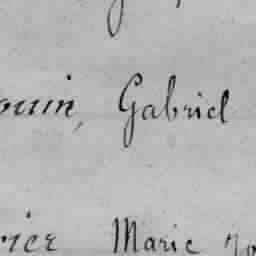 ouin, Gabriel
rier Marie